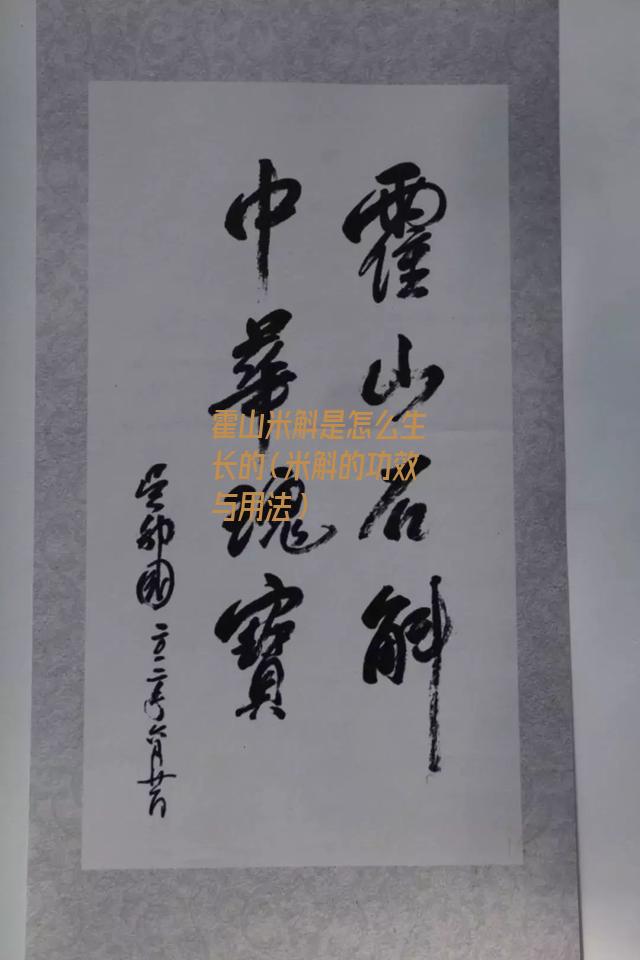 霍山石斛
中華瑰寶
吴邦國
二〇一二年六月廿一日
霍山米斛是怎么生
长的(米斛的功效
与用法)